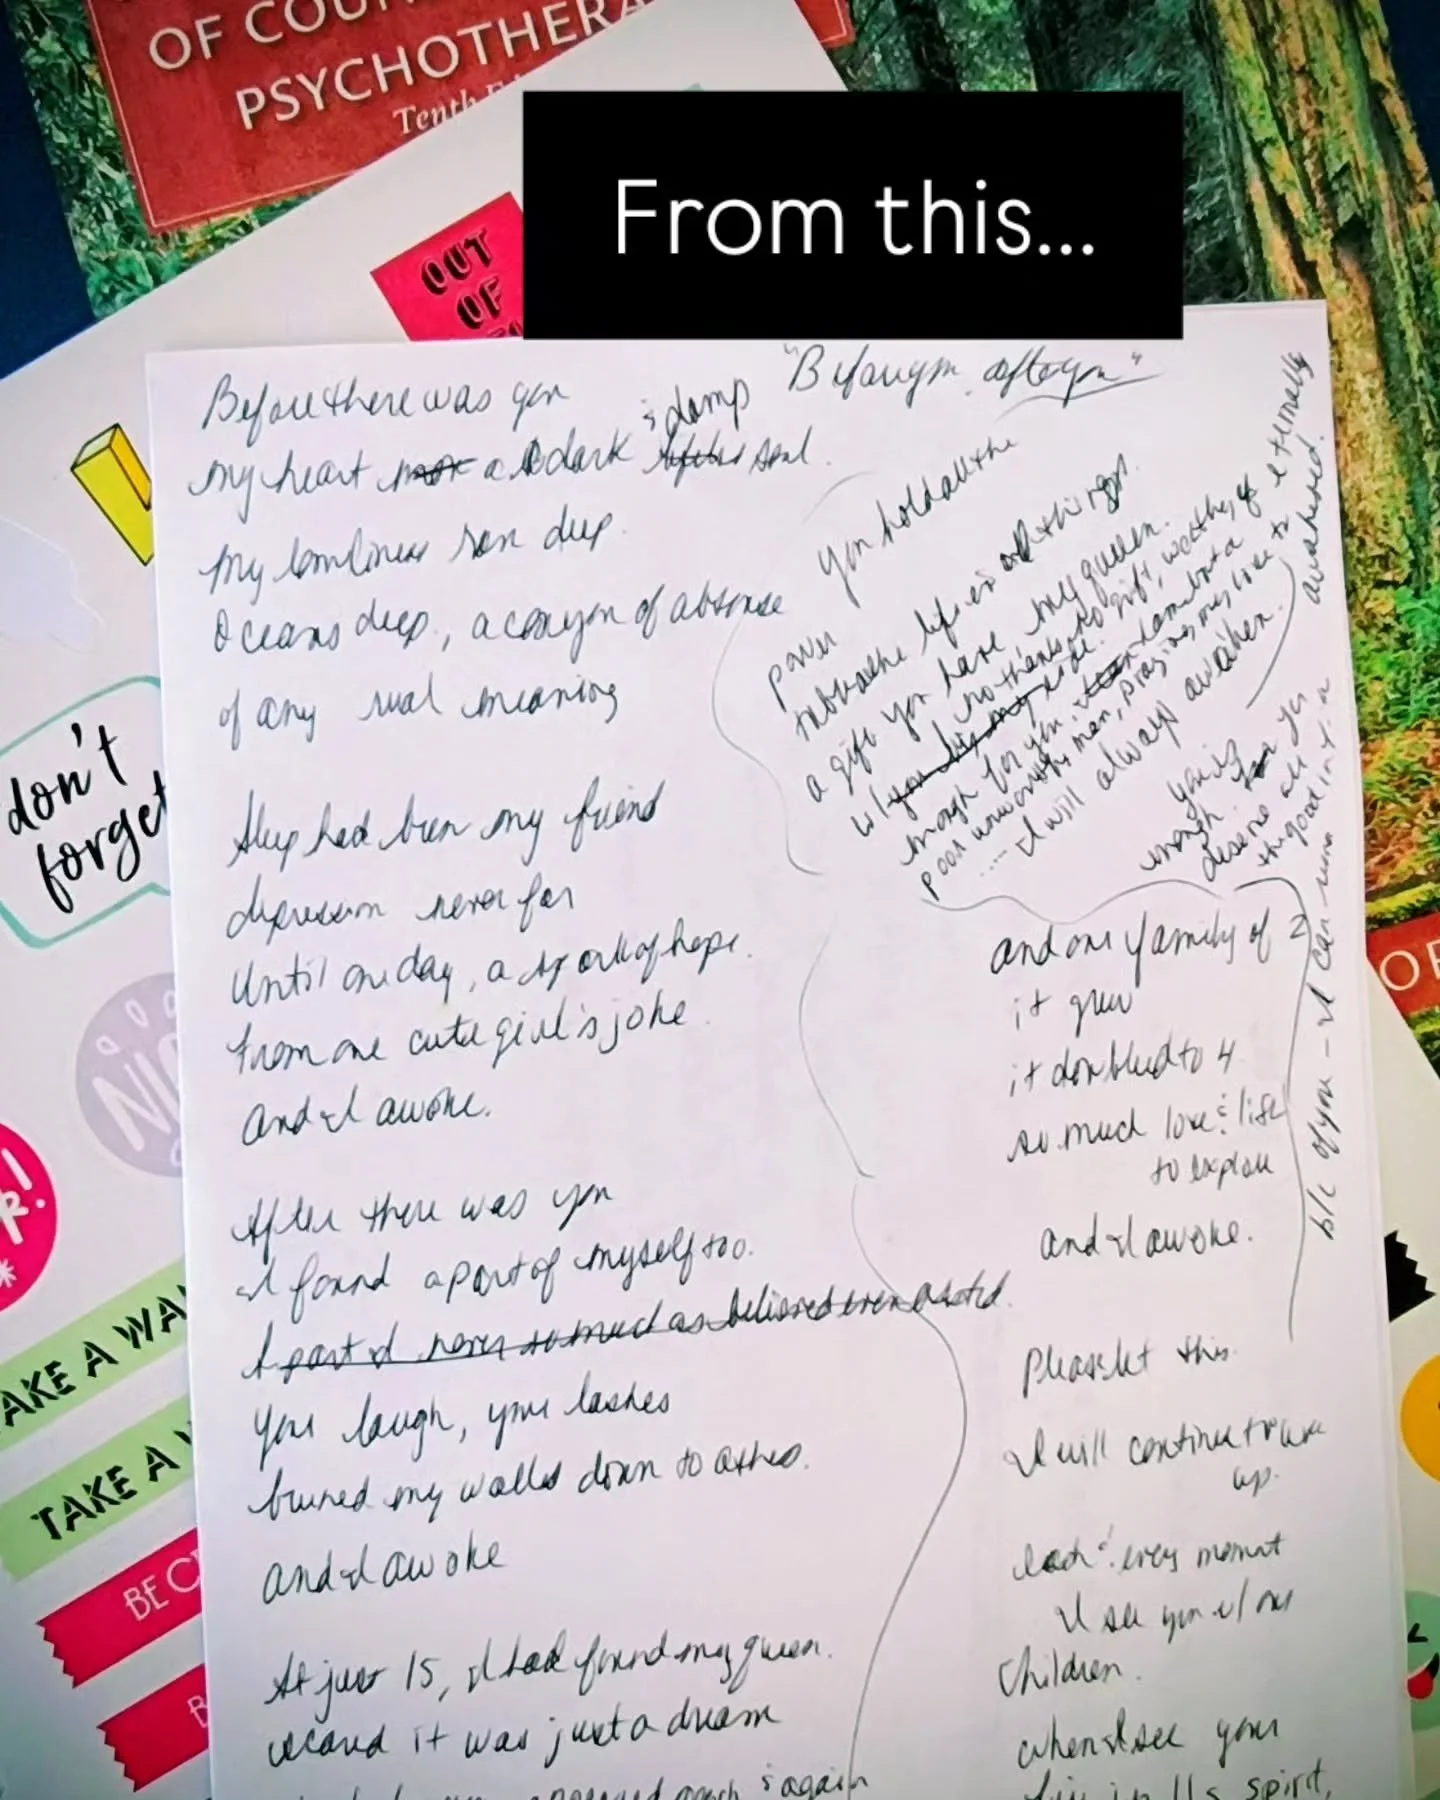 OF COUN
PSYCHOTHERA
Tenth
OUT
OF
From this...
"Before you, after you"
Before there was you
my heart a dark & damp soul.
My lonliness ran deep.
Oceans deep, a canyon of absense
of any real meaning
Sleep had been my friend
depression never far
Until one day, a spark of hope.
From one cute girl's joke.
And I awoke.
After there was you
I found a part of myself too.
A part I never so much as believed even existed.
You laugh, your lashes
burned my walls down to ashes.
and I awoke
At just 15, I had found my queen.
scared it was just a dream
again
you hold all the
power
to breathe life in all things.
a gift you have, my queen.
w/ no thanks, no gift, worthy of eternally
enough for you.
poor unworthy man, praying
.... I will always awaken.
awakened.
you is
enough for you
deserve all
the good int'n
b/c of you - I can
and our family of 2
it grew
it doubled to 4
so much love & life
to explore
and I awoke.
Please let this.
I will continue to wake
up.
each & every moment
I see you w/ our
Children.
when I see your
spirit,
don't
forget
NO
R!
TAKE A WA
TAKE A
BE C
B
OF